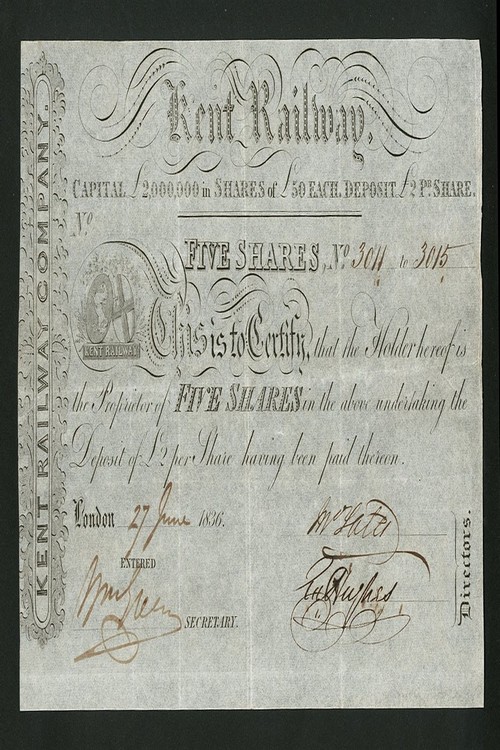 KENT RAILWAY COMPANY.
Kent Railway.
CAPITAL £2,000,000 in SHARES of £50 EACH. DEPOSIT £2 PR. SHARE.
No.
FIVE SHARES, No. 3011 to 3015
KENT RAILWAY
This is to Certify, that the Holder hereof is
the Proprietor of FIVE SHARES in the above undertaking the
Deposit of £2 per Share having been paid thereon.
London 27 June 1836.
ENTERED
Wm Green
SECRETARY.
Hughes
Directors.